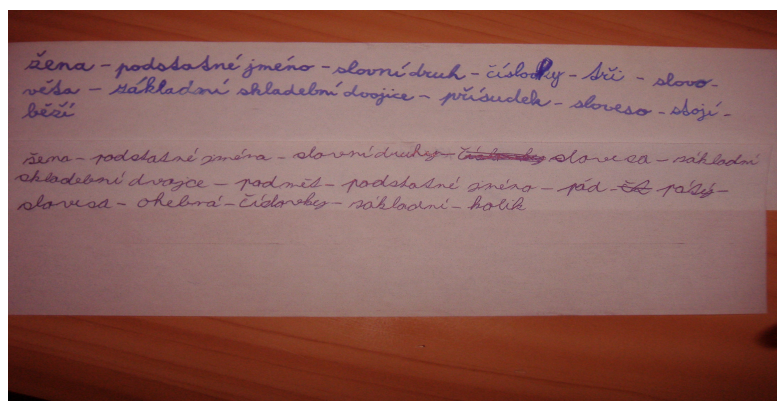 žena - podstatné jméno - slovní druh - číslovky - tři - slovo -
věta - základní skladební dvojice - přísudek - sloveso - stojí -
běží
žena - podstatné jména - slovní druhy - slovesa - základní
skladební dvojce - podmět - podstatné jméno - pád - pátý -
slovesa - ohebná - číslovky - základní - kolik